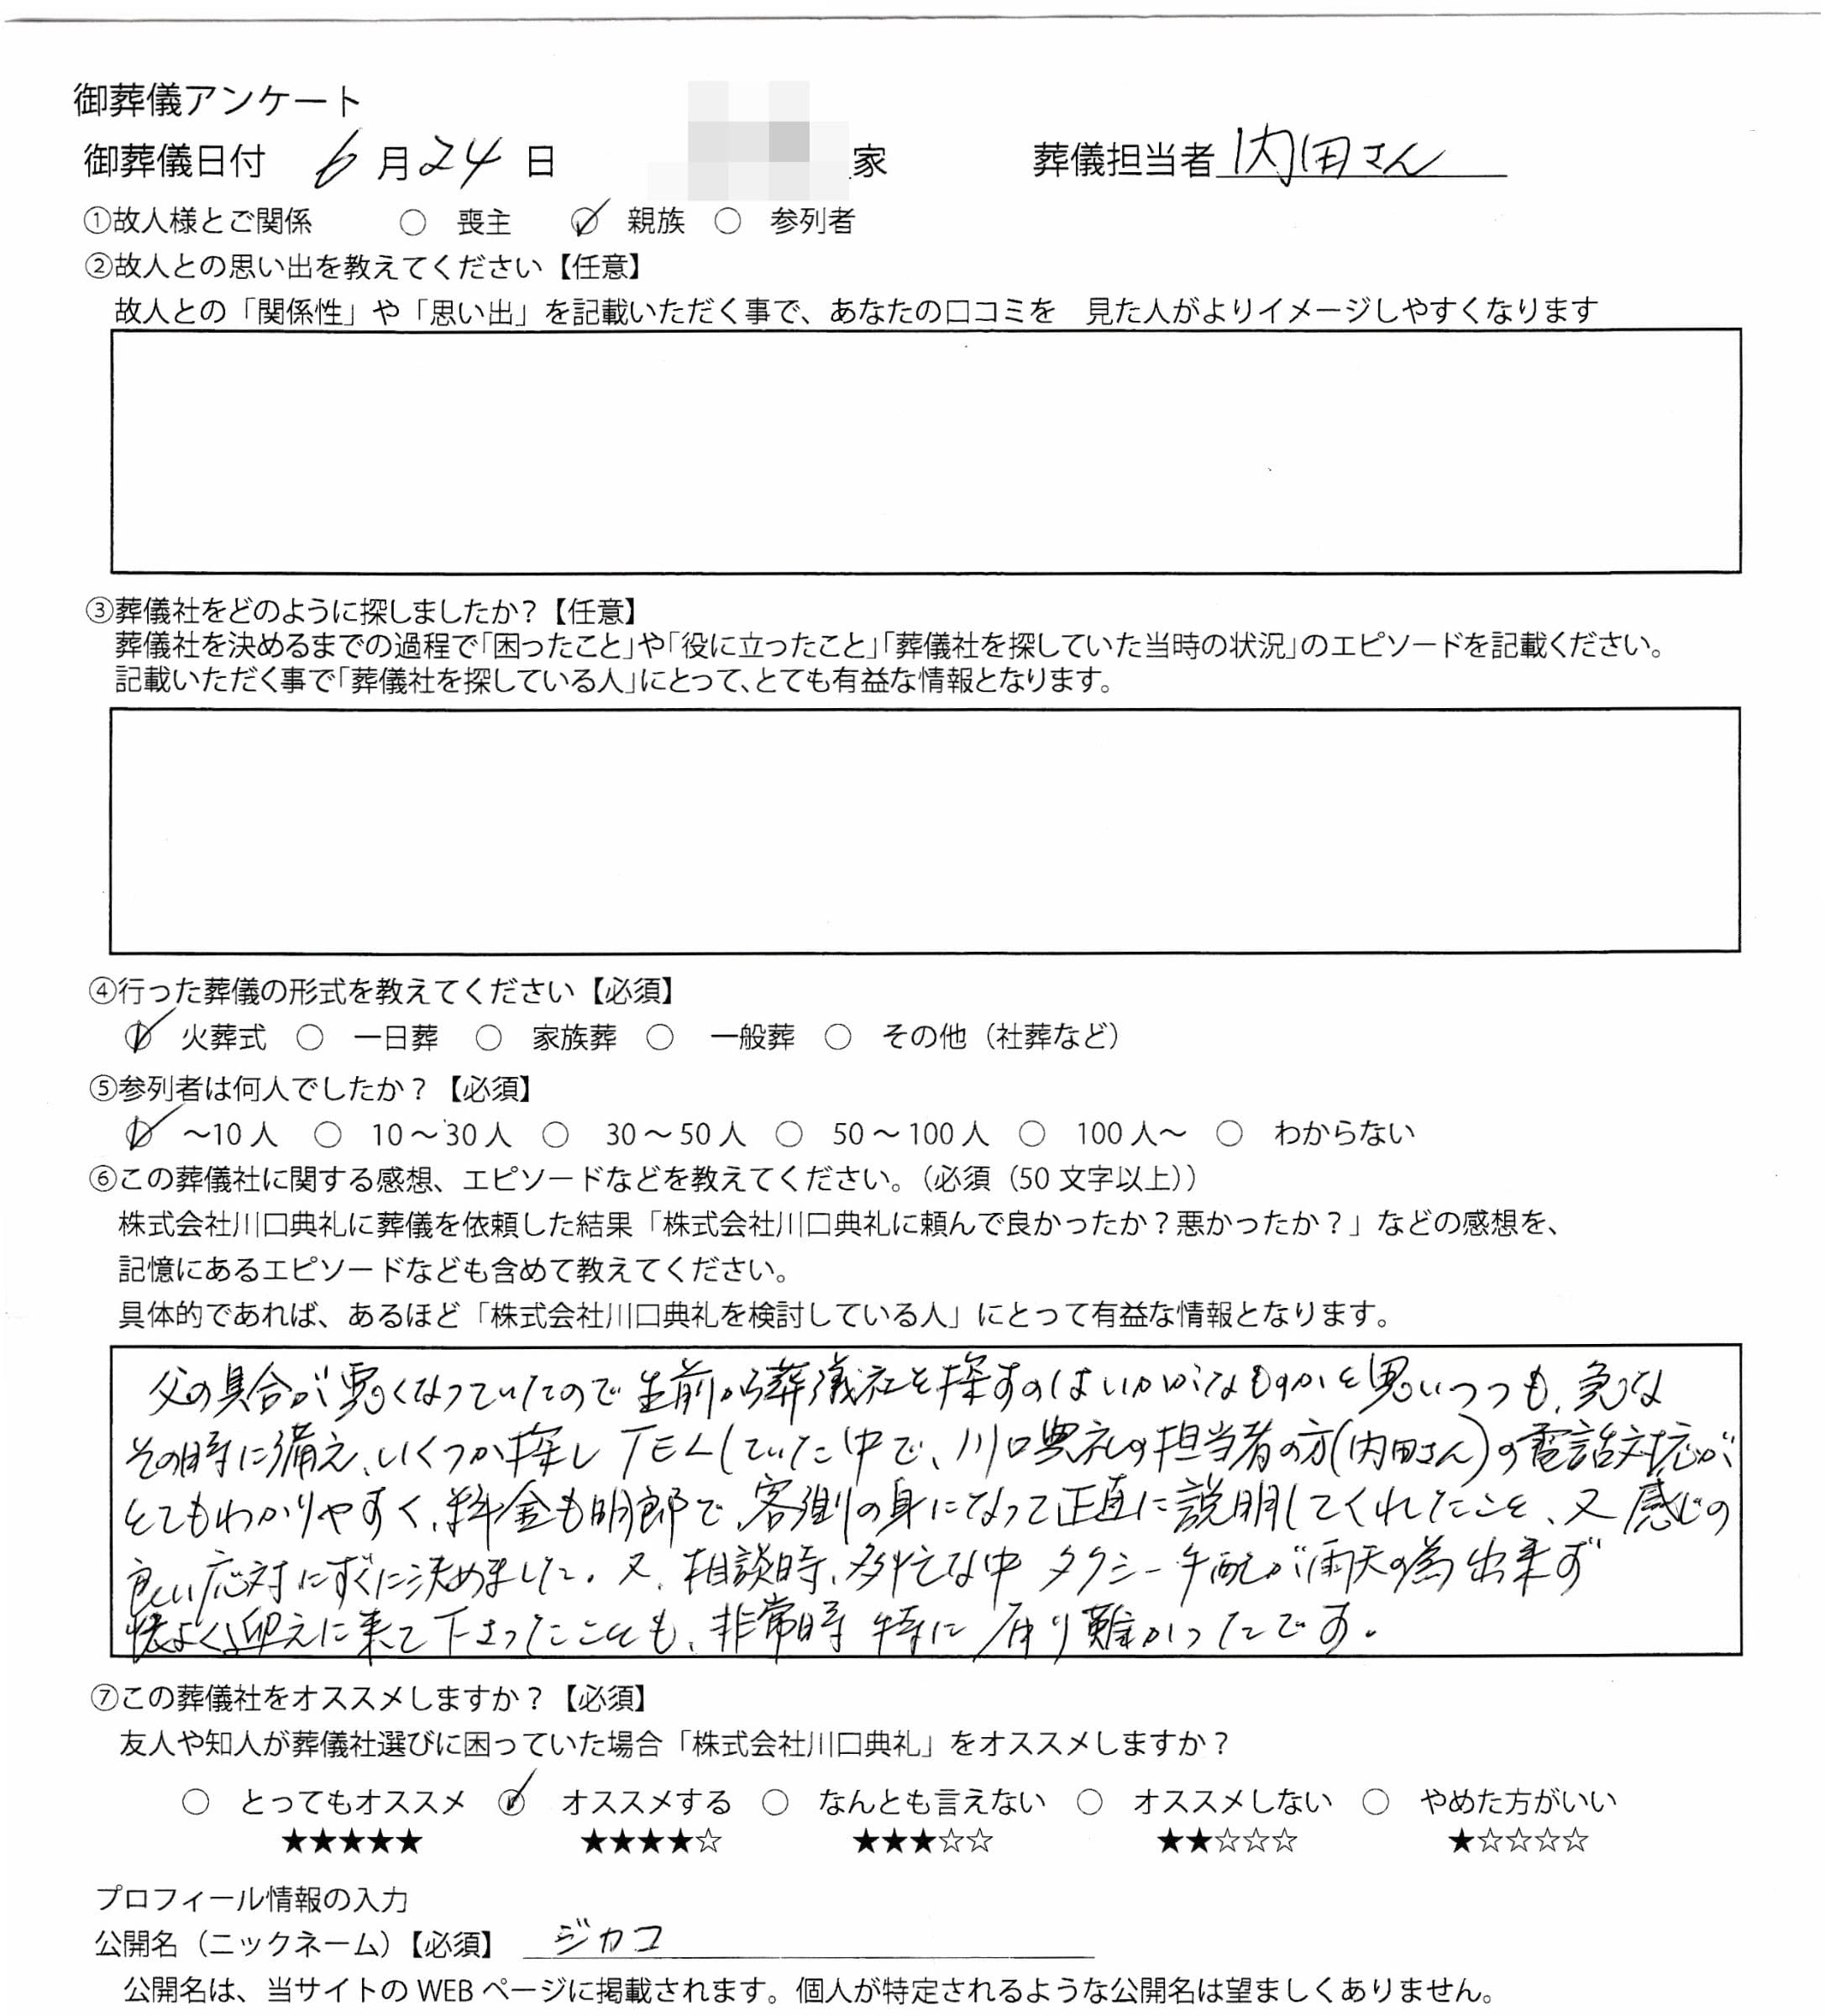 御葬儀アンケート
御葬儀日付 6月24日 家 葬儀担当者 内田さん
①故人様とご関係 ○ 喪主 ○ 親族 ○ 参列者
②故人との思い出を教えてください【任意】
故人との「関係性」や「思い出」を記載いただく事で、あなたの口コミを 見た人がよりイメージしやすくなります
③葬儀社をどのように探しましたか?【任意】
葬儀社を決めるまでの過程で「困ったこと」や「役に立ったこと」「葬儀社を探していた当時の状況」のエピソードを記載ください。
記載いただく事で「葬儀社を探している人」にとって、とても有益な情報となります。
④行った葬儀の形式を教えてください【必須】
○ 火葬式 ○ 一日葬 ○ 家族葬 ○ 一般葬 ○ その他(社葬など)
⑤参列者は何人でしたか?【必須】
○ ～10人 ○ 10～30人 ○ 30～50人 ○ 50～100人 ○ 100人～ ○ わからない
⑥この葬儀社に関する感想、エピソードなどを教えてください。(必須(50文字以上))
株式会社川口典礼に葬儀を依頼した結果「株式会社川口典礼に頼んで良かったか?悪かったか?」などの感想を、
記憶にあるエピソードなども含めて教えてください。
具体的であれば、あるほど「株式会社川口典礼を検討している人」にとって有益な情報となります。
父の具合が悪くなっていたので生前から葬儀社を探すのはいかがなものかと思いつつも、急な
その時に備え、いくつか探しTELしていた中で、川口典礼の担当者の方(内田さん)の電話対応が
とてもわかりやすく、料金も明郎で、客側の身になって正直に説明してくれたこと、又感じの
良い応対にすぐに決めました。又、相談時、多忙な中タクシー手配が雨天の為出来ず
快よく迎えに来て下さったことも、非常時特に有り難かったです。
⑦この葬儀社をオススメしますか?【必須】
友人や知人が葬儀社選びに困っていた場合「株式会社川口典礼」をオススメしますか?
○ とってもオススメ ○ オススメする ○ なんとも言えない ○ オススメしない ○ やめた方がいい
★★★★★ ★★★★☆ ★★★☆☆ ★★☆☆☆ ★☆☆☆☆
プロフィール情報の入力
公開名(ニックネーム)【必須】 ジカコ
公開名は、当サイトのWEBページに掲載されます。個人が特定されるような公開名は望ましくありません。